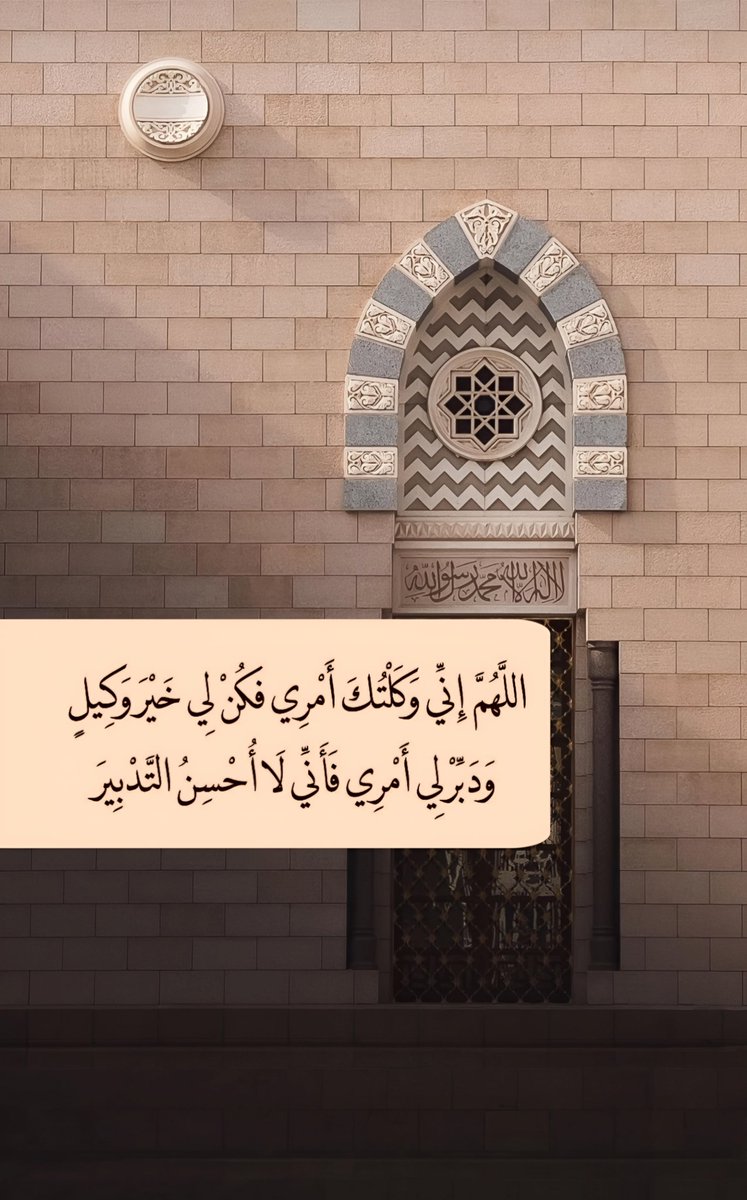 لا إله إلا الله محمد رسول الله
اللَّهُمَّ إِنِّي وَكَلْتُكَ أَمْرِي فَكُنْ لِي خَيْرَ وَكِيلٍ
وَدَبِّرْ لِي أَمْرِي فَأَنِّي لَا أُحْسِنُ التَّدْبِيرَ